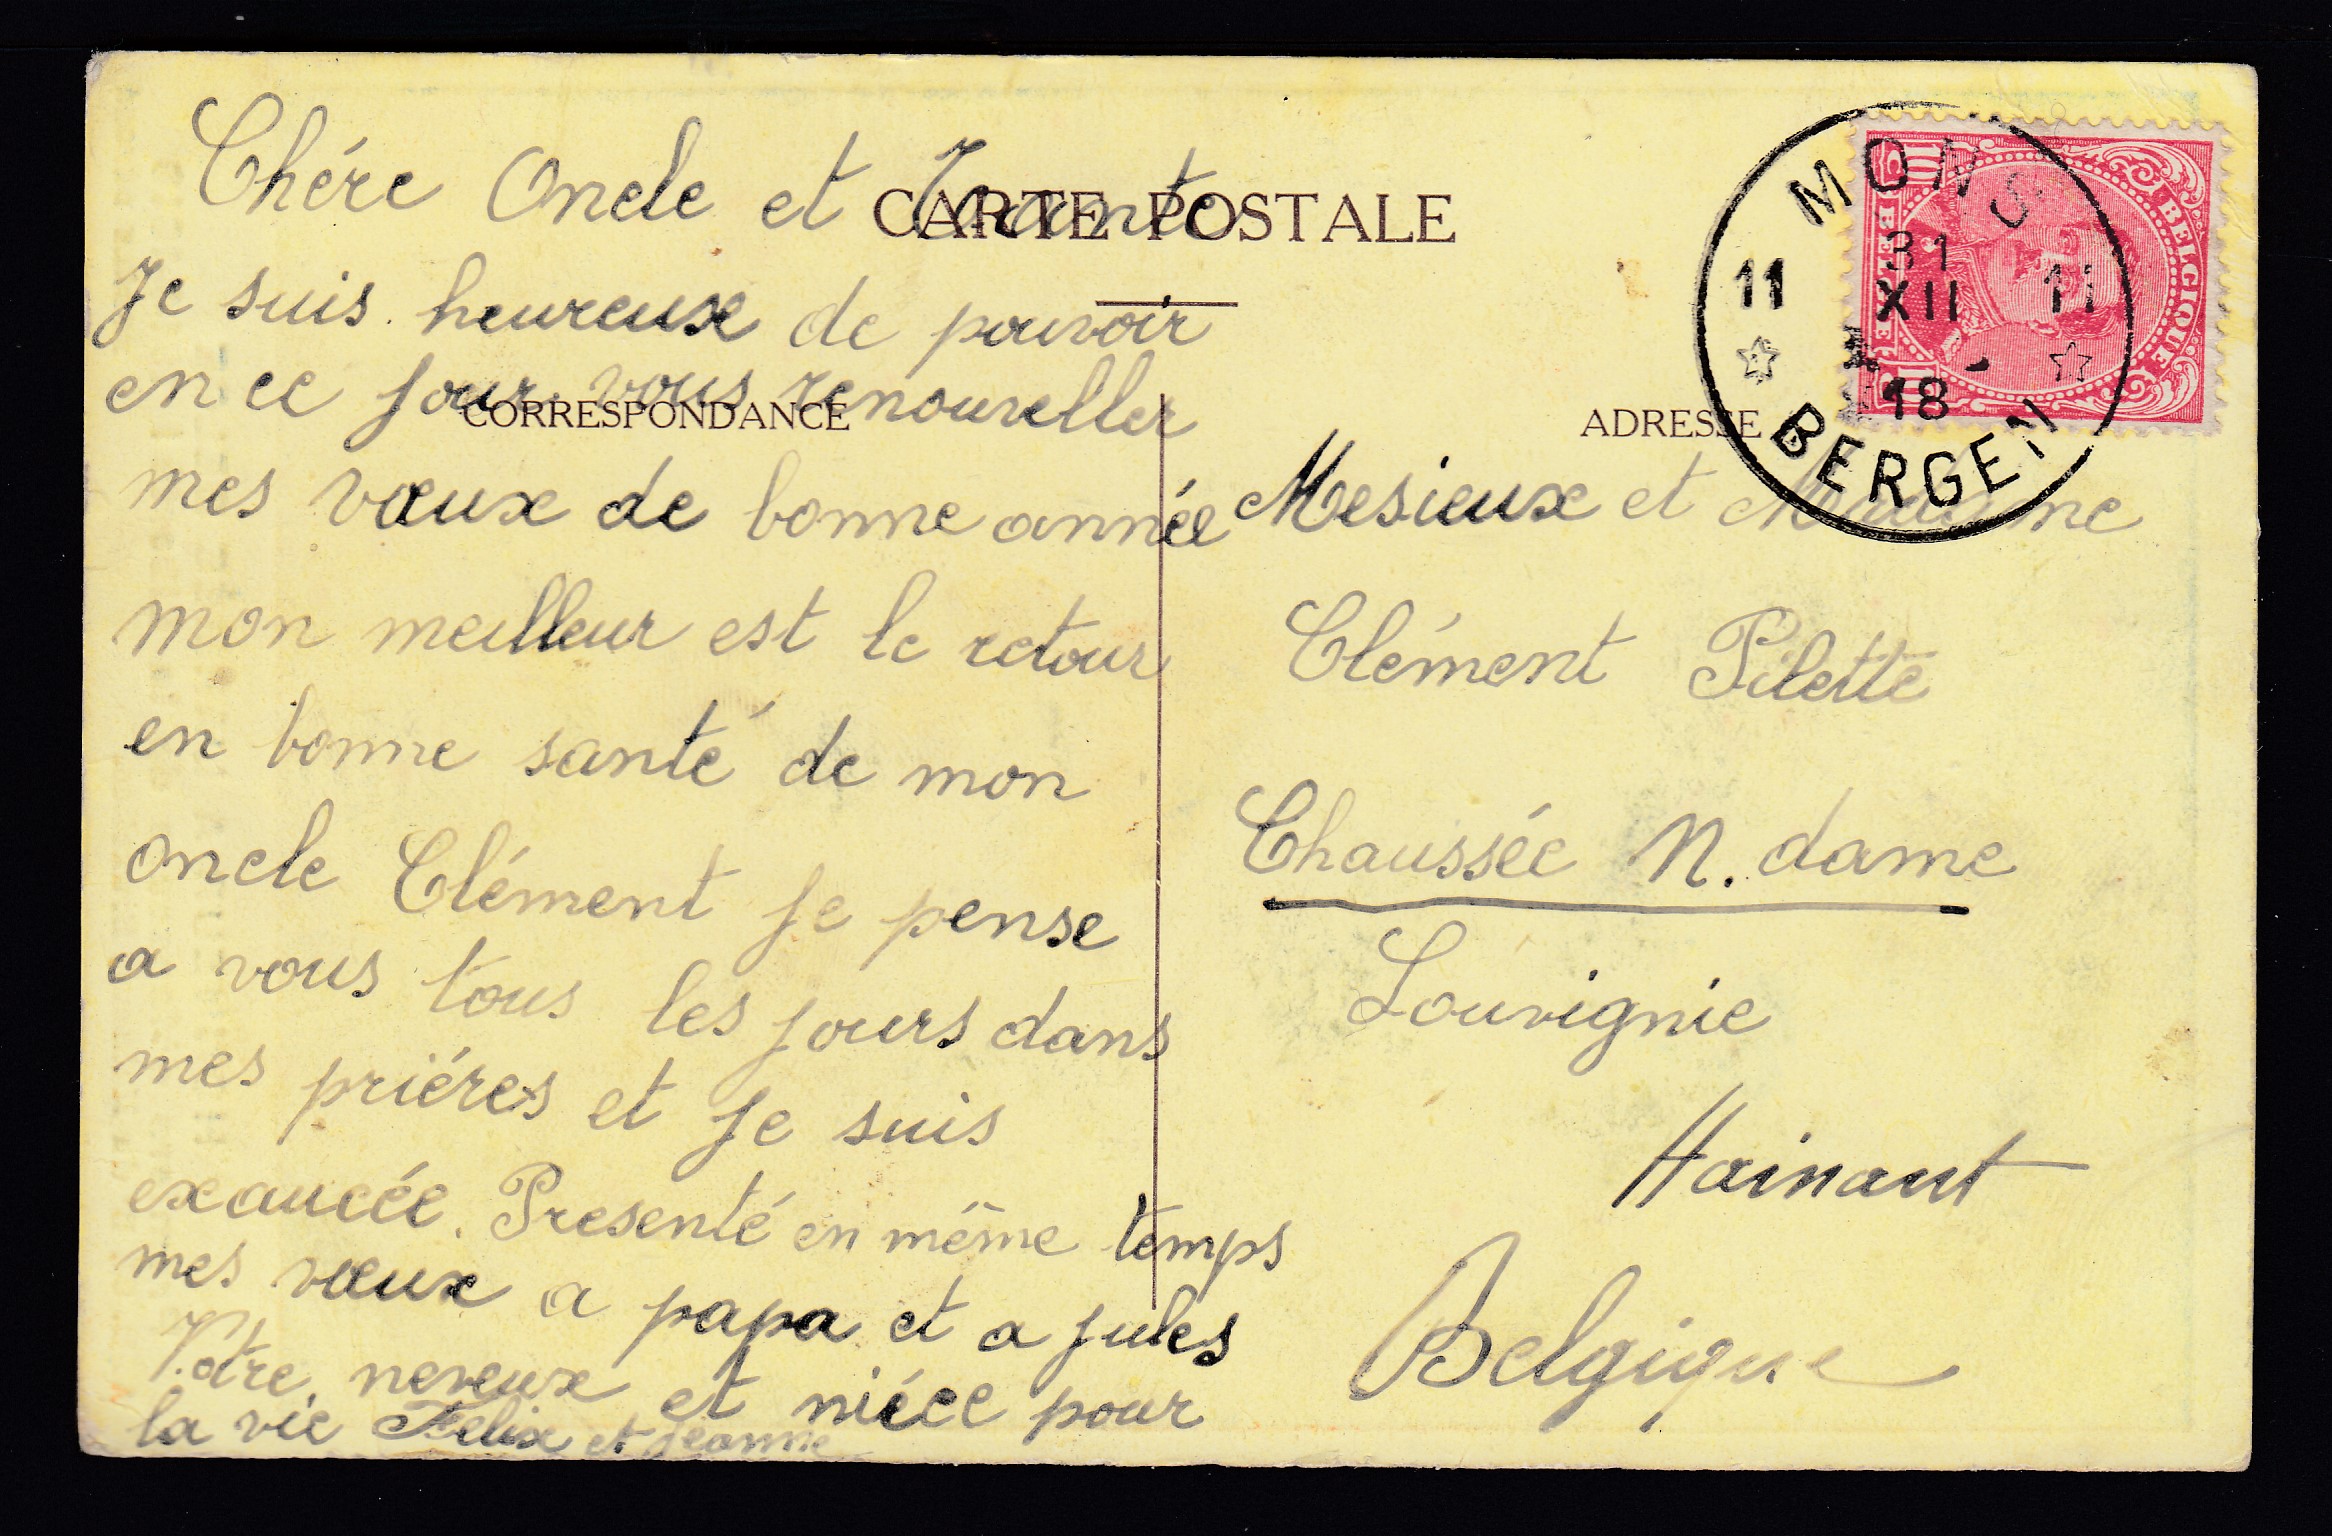 CARTE POSTALE
CORRESPONDANCE
ADRESSE
Chére Oncle et Tante
Je suis heureuse de pouvoir
en ce jour vous renouveller
mes vœux de bonne année
mon meilleur est le retour
en bonne santé de mon
oncle Clément je pense
a vous tous les jours dans
mes priéres et je suis
exaucée. Presenté en même temps
mes vœux a papa et a jules
Votre neveux et niéce pour
la vie Felix et Jeanne
Mesieux et Madame
Clément Pilette
Chaussée N. dame
Louvignie
Hainaut
Belgique
MONS
11 31 11
XII
18
BERGEN
BELGIQUE